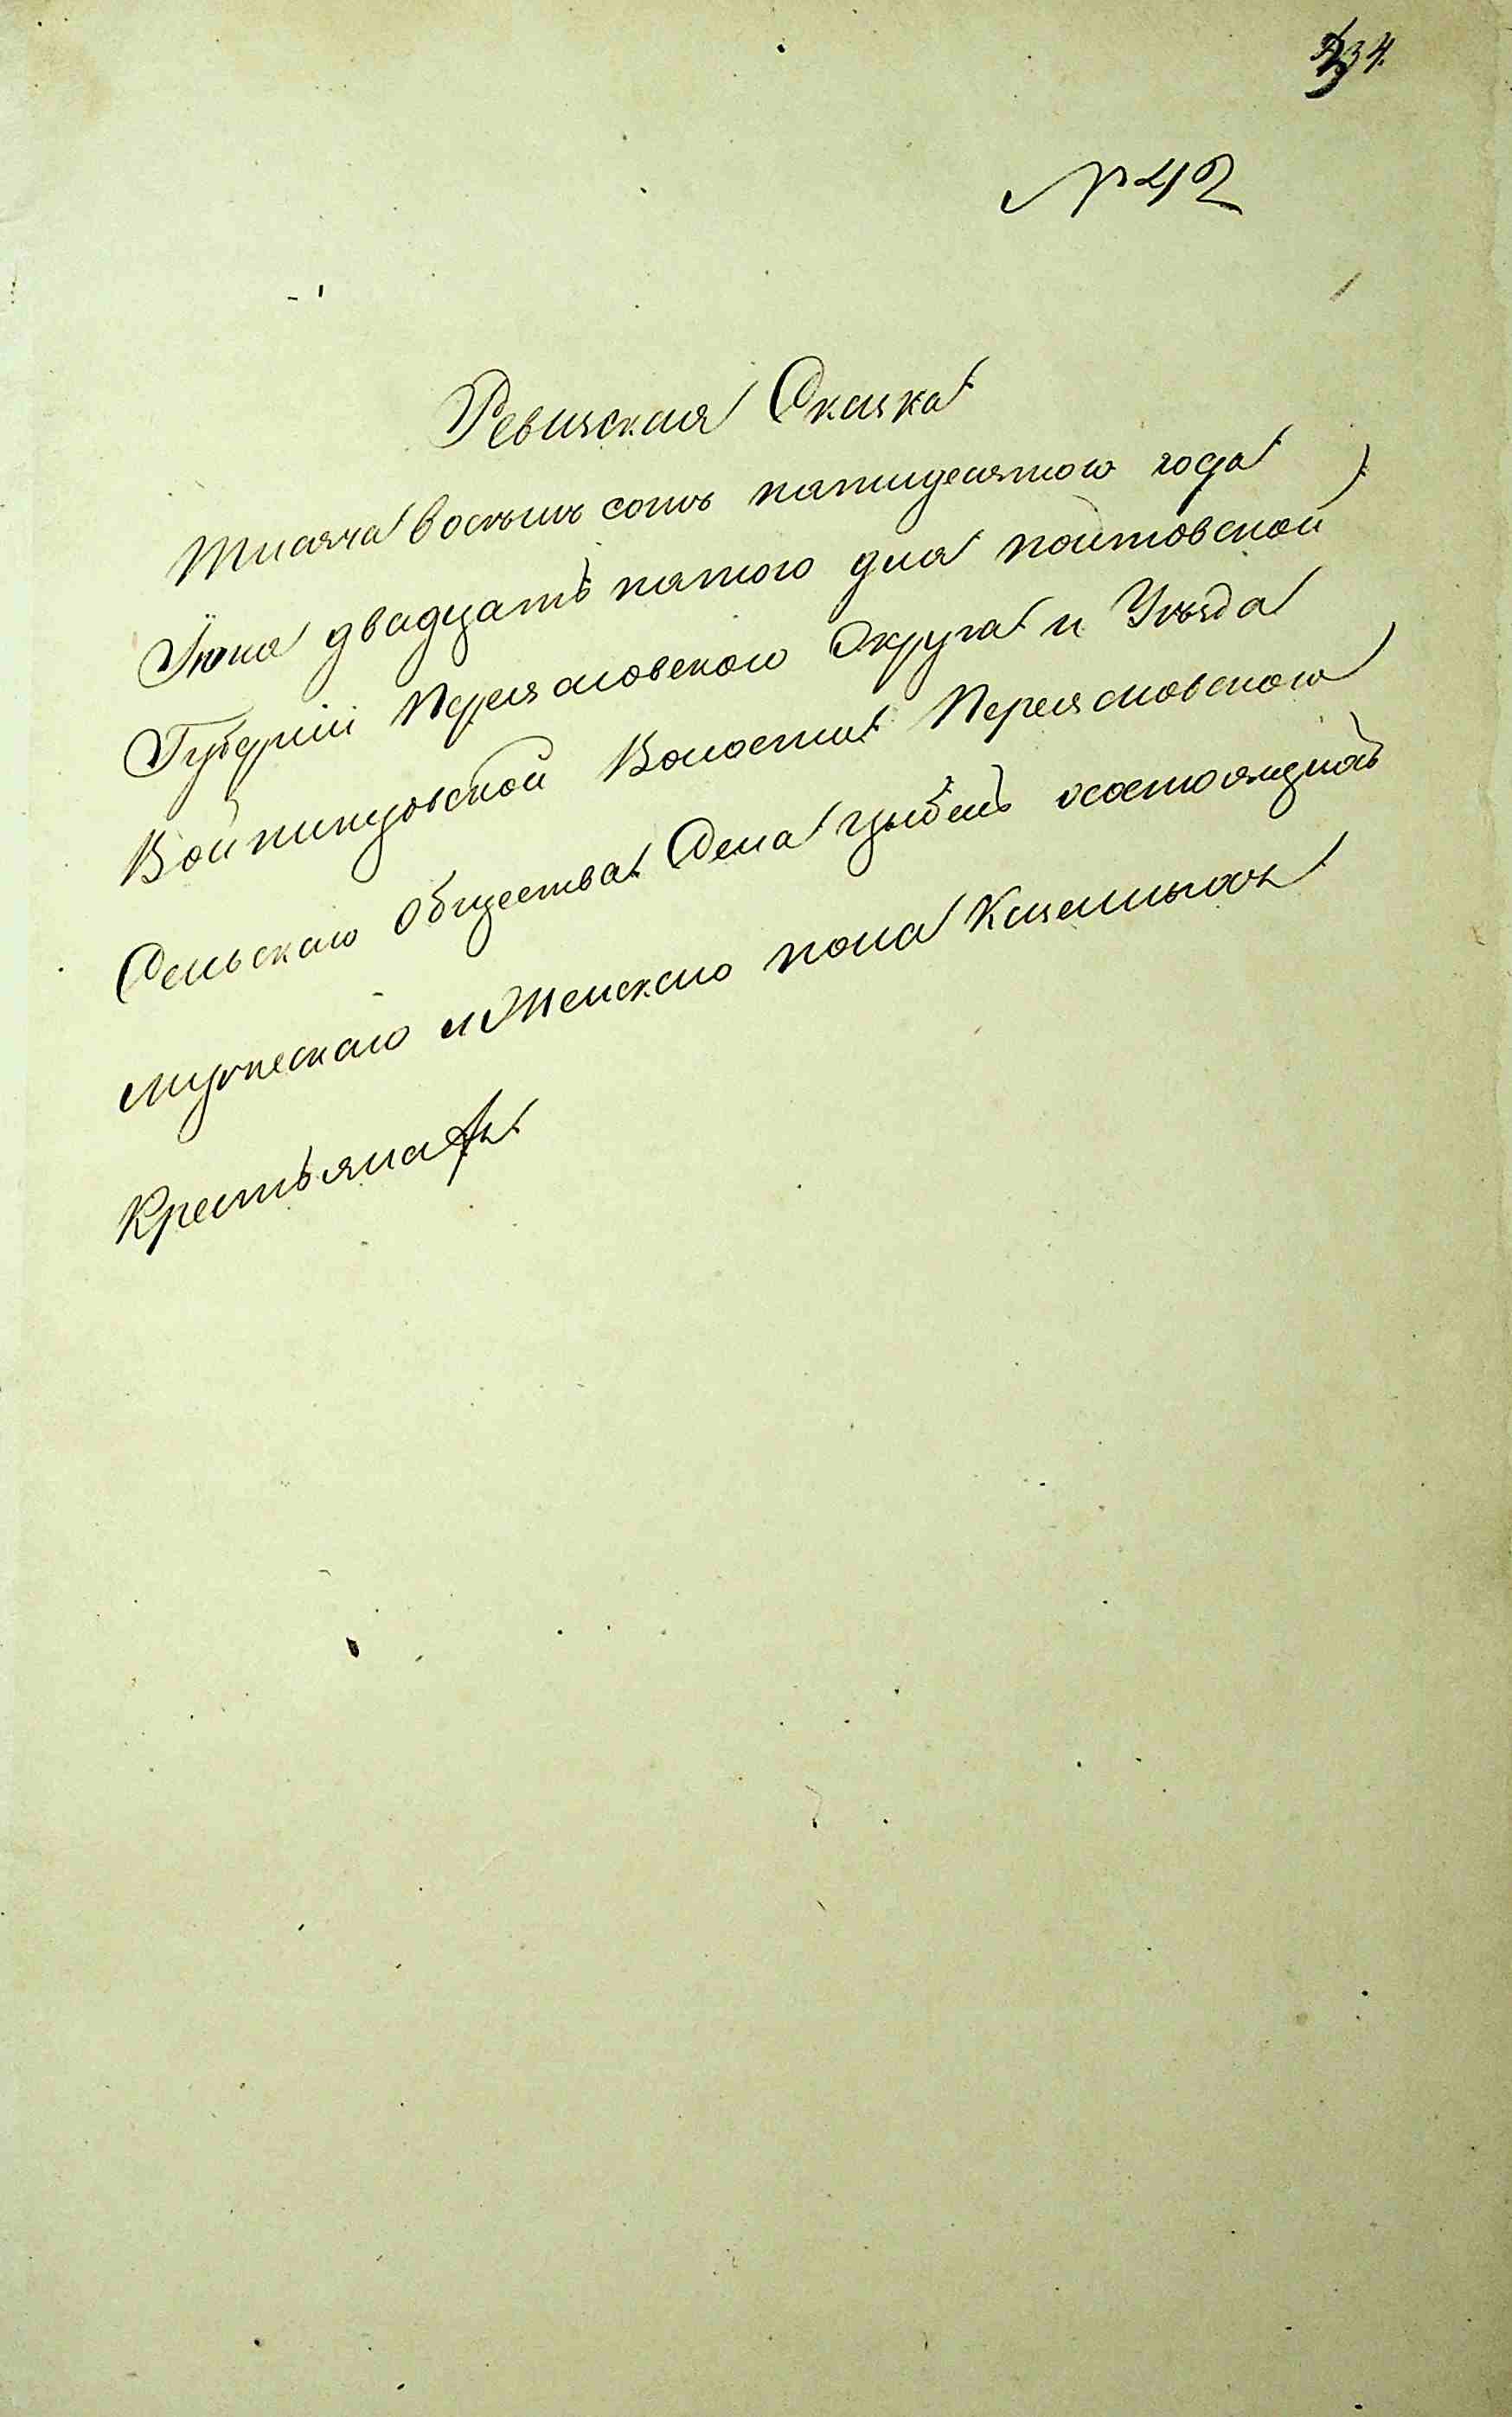 234.
№ 42
Ревизская Сказка
Тисяча восьмь сотъ пятидесятого года
Июня двадцать пятого дня полтовской
Губерніи Переясловского Округа и Уезда
Войтицовской Волости Переясловского
Сельскаго Общества Села Цыбель о состоящихъ
мужескаго и Женскаго пола Казенныхъ
Крестьянахъ